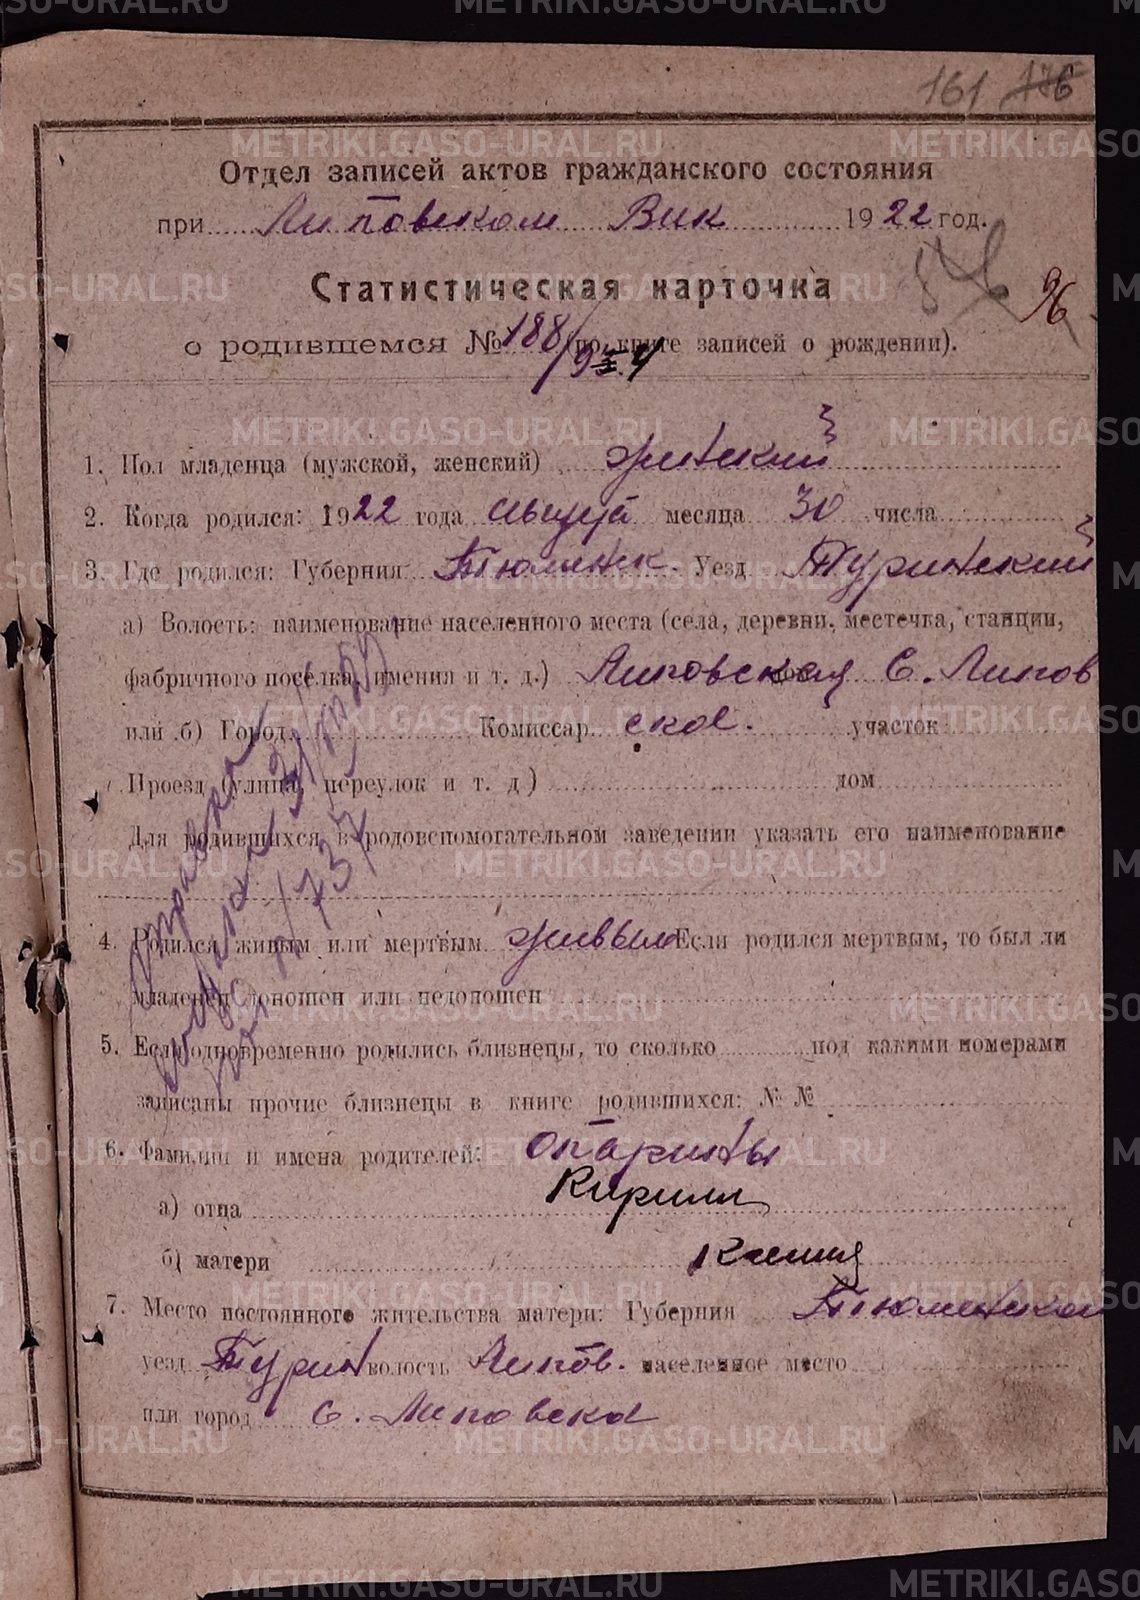 161 176
Отдел записей актов гражданского состояния
при Липовском Вик 1922 год.
Статистическая карточка
96
о родившемся № 188/ (по книге записей о рождении).
1. Пол младенца (мужской, женский) женский
2. Когда родился: 1922 года августа месяца 30 числа
3. Где родился: Губерния Тюменск. Уезд Туринский
а) Волость: наименование населенного места (села, деревни, местечка, станции,
фабричного поселка, имения и т. д.) Липовская С. Липов
или б) Город Комиссар ское. участок
Проезд (улица, переулок и т. д.) дом
Для родившихся в родовспомогательном заведении указать его наименование
4. Родился живым или мертвым живым Если родился мертвым, то был ли
младенец доношен или недоношен
5. Если одновременно родились близнецы, то сколько под какими номерами
записаны прочие близнецы в книге родившихся: № №
6. Фамилии и имена родителей: Опарины
а) отца Кирилл
б) матери Ксения
7. Место постоянного жительства матери: Губерния Тюменская
уезд Турин волость Липов. населенное место
или город С. Липовское
METRIKI.GASO-URAL.RU